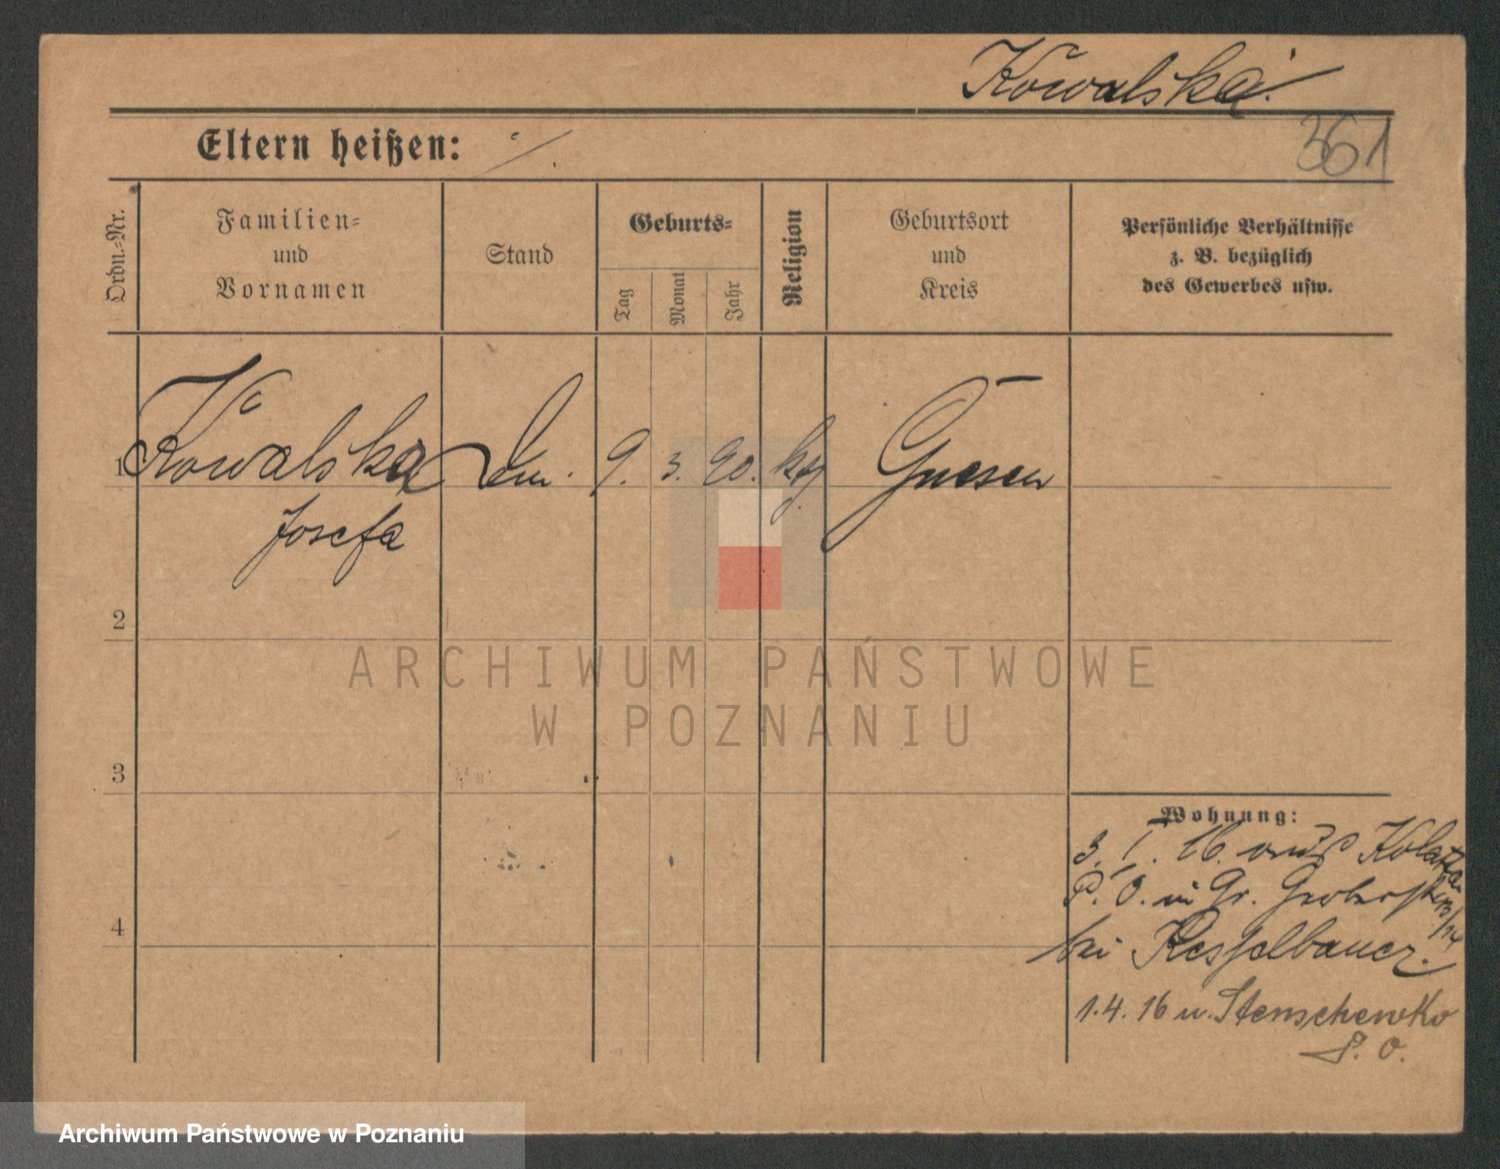 Kowalska.
361
Eltern heißen: ·/.
Ordn.-Nr.
Familien-
und
Vornamen
Stand
Geburts-
Tag
Monat
Jahr
Religion
Geburtsort
und
Kreis
Persönliche Verhältnisse
z. B. bezüglich
des Gewerbes usw.
1 Kowalska 9. 3. 90. ktf. Gnesen
Josefa
2
ARCHIWUM PAŃSTWOWE
W POZNANIU
3
Wohnung:
3. 1. 16.
P. O. in Gr.
4
bei Kesselbauer.
1.4.16 n. Stenschewko
P. O.
Archiwum Państwowe w Poznaniu